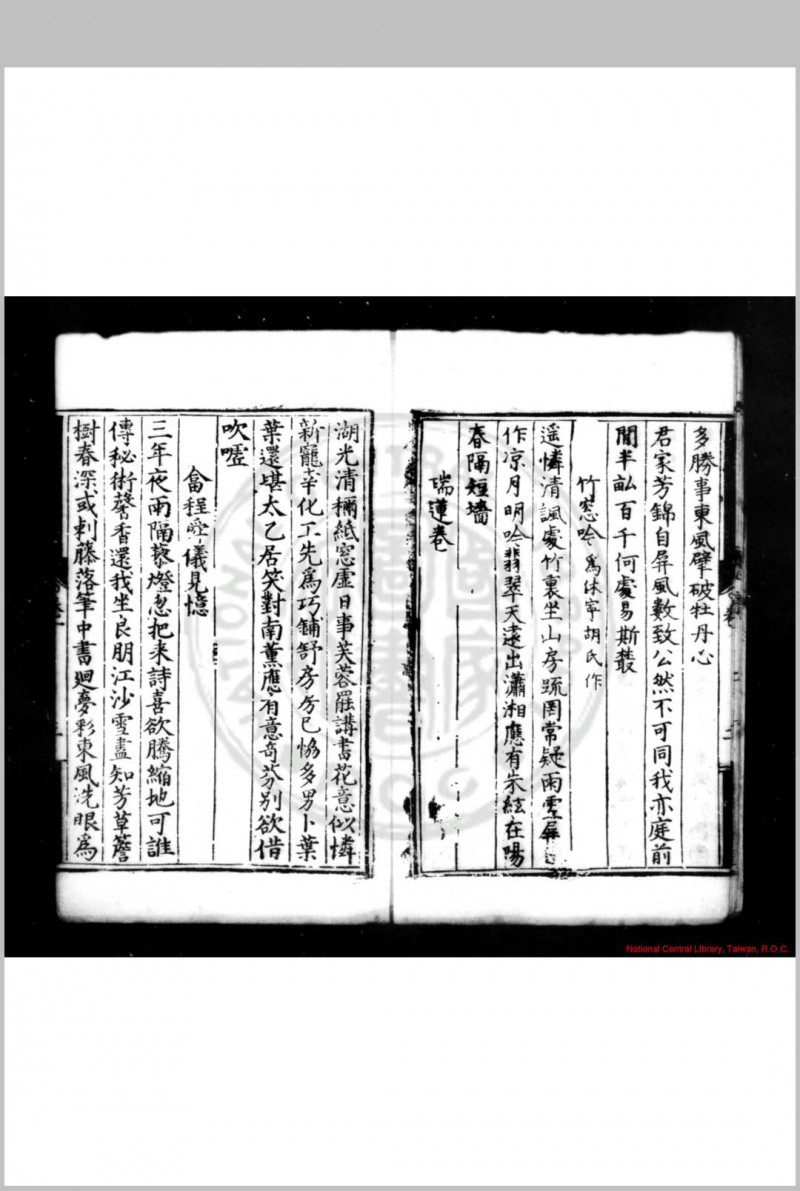 多勝事東風擘破牡丹心
君家芳錦自屏風數致公然不可同我亦庭前
閒半畝百千何處易斯叢
竹窓吟 為休寧胡氏作
遥憐清諷處竹裏坐山房踈罔常疑雨雲屏
作凉月明吟翡翠天遠出瀟湘應有朱絃在陽
春隔短墻
瑞蓮卷
湖光清稱紙窓虛日事芙蓉罷講書花意似憐
新寵幸化工先為巧鋪舒房房已恊多男卜葉
葉還堪太乙居笑對南薰應有意奇芬別欲借
吹噓
畣程時儀見憶
三年夜雨隔藜燈忽把来詩喜欲騰縮地可誰
傳秘術馨香還我坐良朋江沙雪盡知芳草簷
樹春深或刺藤落筆中書廻夢彩東風洗眼為
National Central Library, Taiwan, R.O.C.